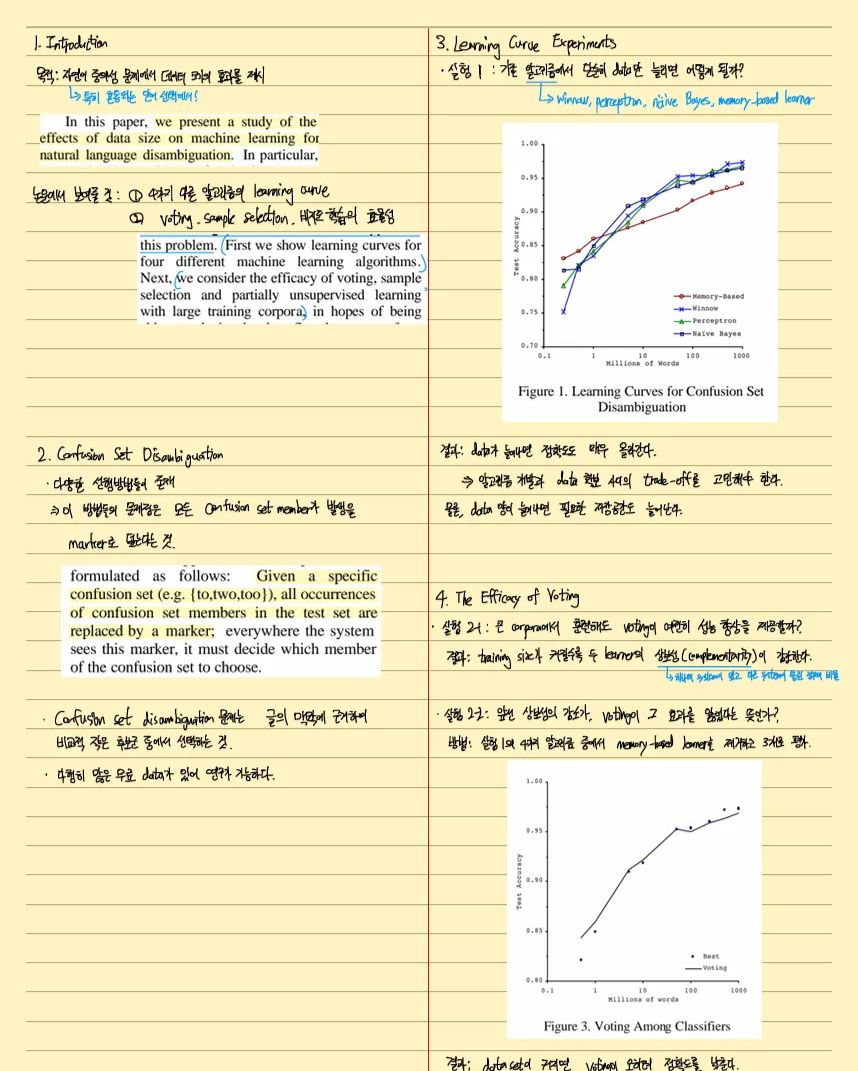 1. Introduction
목적: 자연어 중의성 문제에서 데이터 크기의 효과를 제시
↳ 특히 혼동되는 단어 선택에서!
In this paper, we present a study of the
effects of data size on machine learning for
natural language disambiguation. In particular,
논문에서 보여줄 것: ① 4가지 다른 알고리즘의 learning curve
② voting, sample selection, 비지도 학습의 효율성
this problem. First we show learning curves for
four different machine learning algorithms.
Next, we consider the efficacy of voting, sample
selection and partially unsupervised learning
with large training corpora, in hopes of being
2. Confusion Set Disambiguation
· 다양한 선행방법들이 존재
⇒ 이 방법들의 문제점은 모든 confusion set member가 발생을
marker로 된다는 것.
formulated as follows: Given a specific
confusion set (e.g. {to,two,too}), all occurrences
of confusion set members in the test set are
replaced by a marker; everywhere the system
sees this marker, it must decide which member
of the confusion set to choose.
· Confusion set disambiguation 문제는 글의 맥락에 근거하여
비교적 작은 후보군 중에서 선택하는 것.
· 다행히 많은 무료 data가 있어 연구가 가능하다.
3. Learning Curve Experiments
· 실험 1 : 기존 알고리즘에서 단순히 data만 늘리면 어떻게 될까?
↳ winnow, perceptron, naive Bayes, memory-based learner
1.00
0.95
0.90
0.85
0.80
0.75
0.70
Test Accuracy
Memory-Based
Winnow
Perceptron
Naïve Bayes
0.1 1 10 100 1000
Millions of Words
Figure 1. Learning Curves for Confusion Set
Disambiguation
결과: data가 늘어나면 정확도도 매우 올라간다.
⇒ 알고리즘 개발과 data 확보 사이의 trade-off를 고민해야 한다.
물론, data 양이 늘어나면 필요한 저장공간도 늘어난다.
4. The Efficacy of Voting
· 실험 2-1 : 큰 corpora에서 훈련해도 voting이 여전히 성능 향상을 제공할까?
결과: training size가 커질수록 두 learner의 상보성(complementarity)이 감소한다.
↳ 하나의 system이 맞고 다른 system이 틀린 경우의 비율
· 실험 2-2: 앞선 상보성의 감소가, voting이 그 효과를 잃었다는 뜻인가?
방법: 실험 1의 4가지 알고리즘 중에서 memory-based learner를 제거하고 3개로 평가.
1.00
0.95
0.90
0.85
0.80
Test Accuracy
Best
Voting
0.1 1 10 100 1000
Millions of words
Figure 3. Voting Among Classifiers
결과: data set이 커지면 voting이 오히려 정확도를 낮춘다.